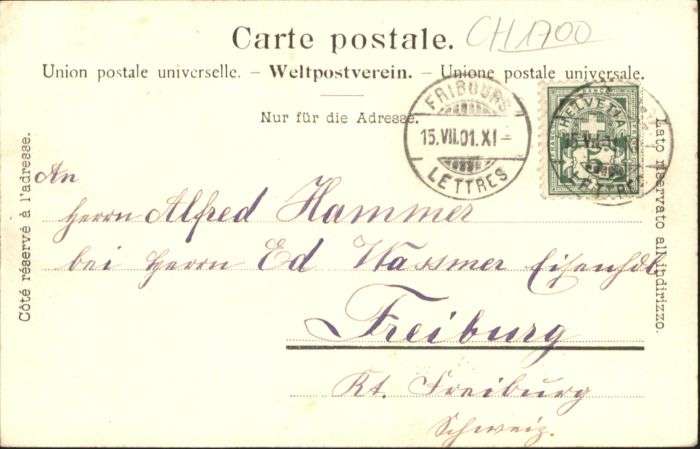 Carte postale. CH1700
Union postale universelle. – Weltpostverein. – Unione postale universale.
Nur für die Adresse.
FRIBOURG
15.VII.01.XI–
LETTRES
HELVETIA
FRANCO
5
Côté réservé à l'adresse.
Lato riservato all'indirizzo.
An
Herrn Alfred Hammer
bei Herrn Ed Wassmer Eisenhdl.
Freiburg
Kt. Freiburg
Schweiz.